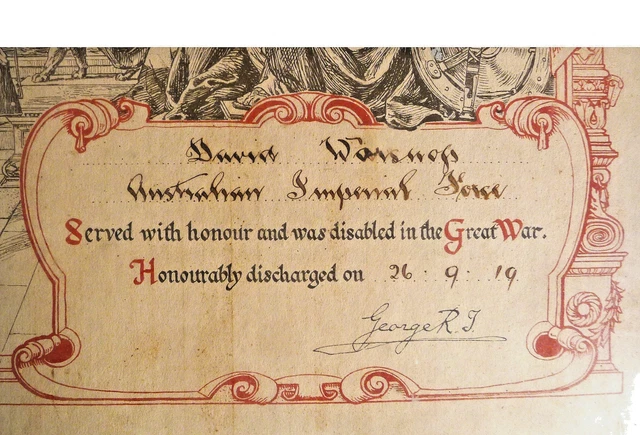 David Worsnop
Australian Imperial Force
Served with honour and was disabled in the Great War.
Honourably discharged on 26 : 9 : 19
George R.I.